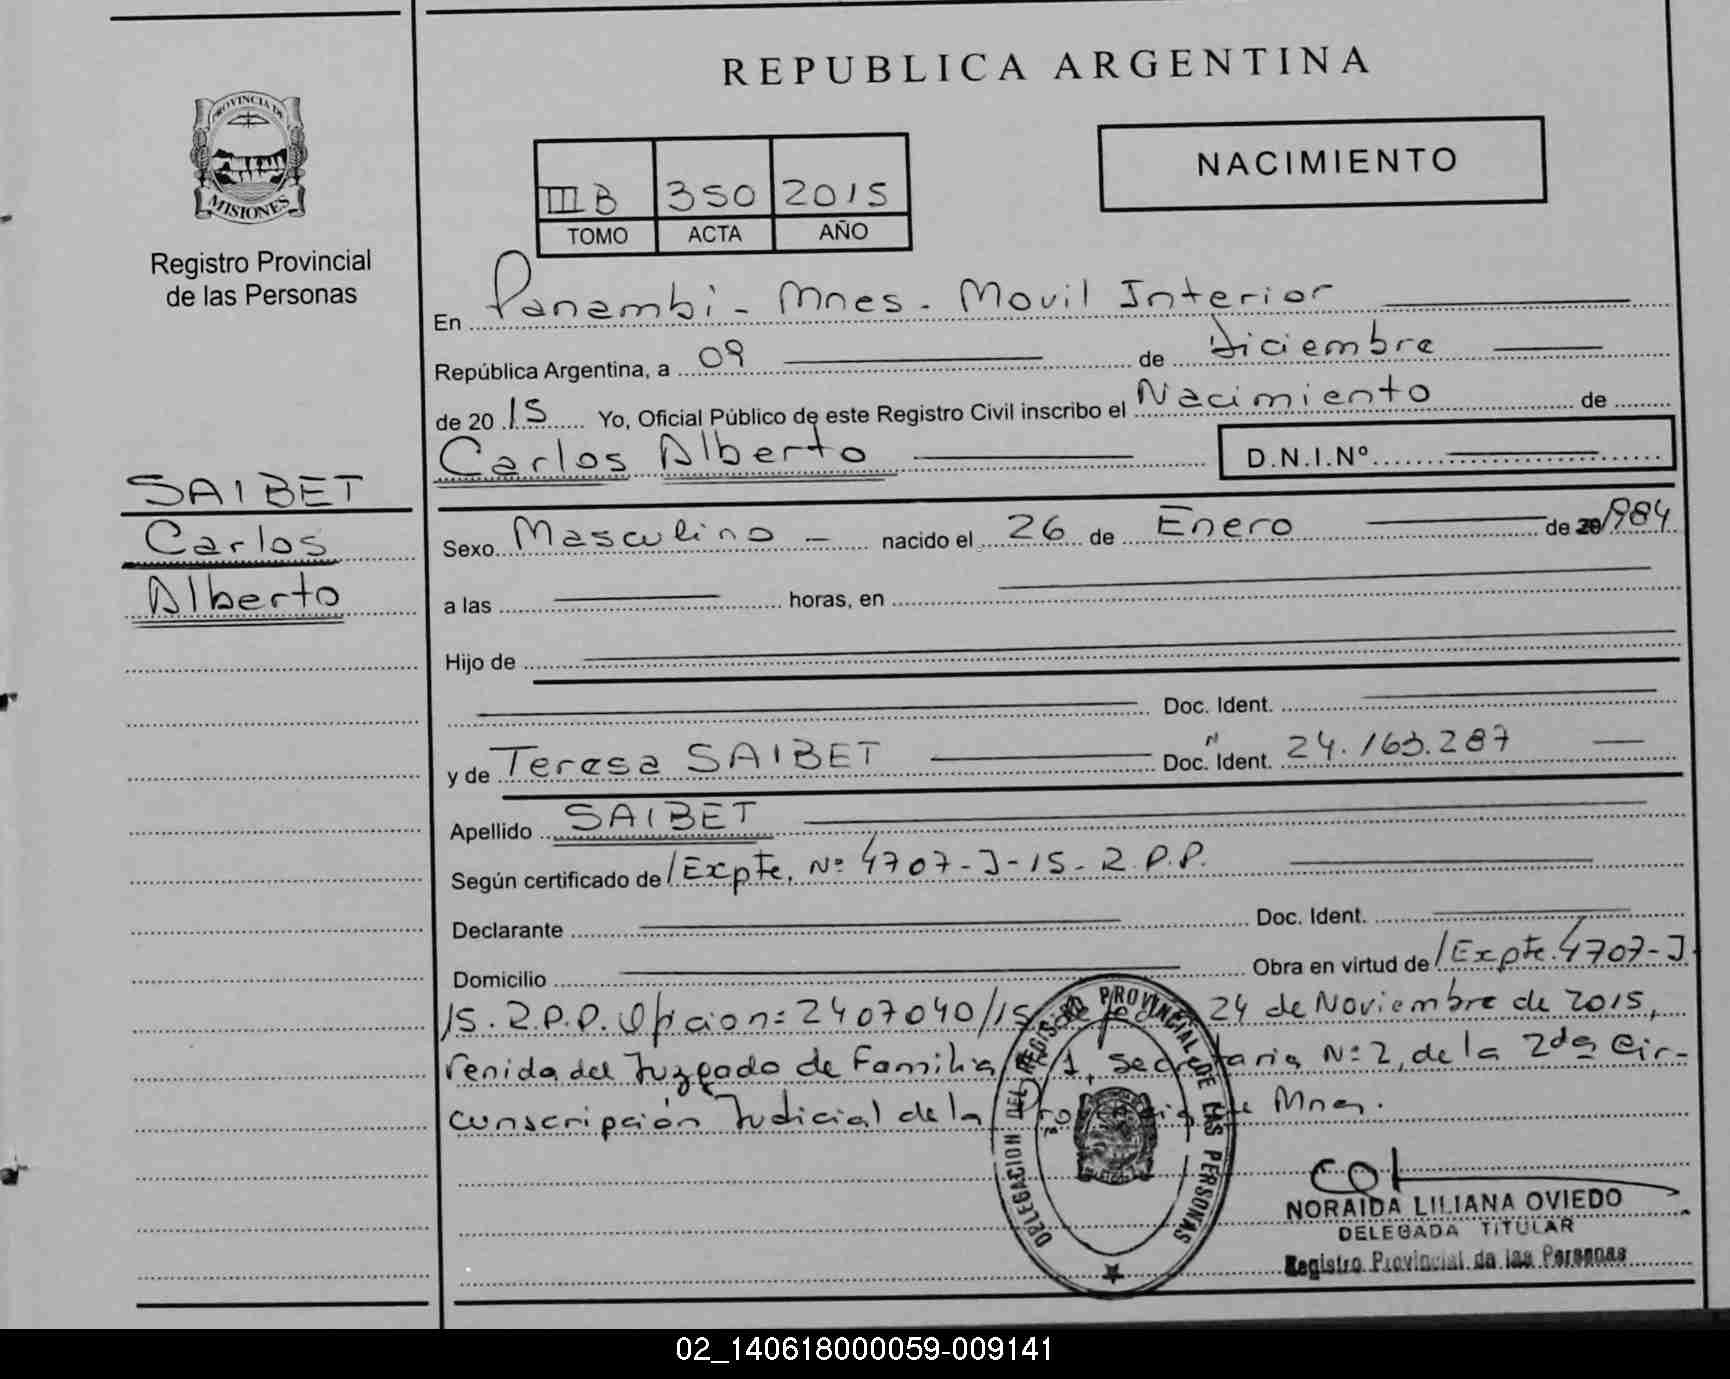 REPUBLICA ARGENTINA
PROVINCIA DE
MISIONES
Registro Provincial
de las Personas
III B 350 2015
TOMO ACTA AÑO
NACIMIENTO
En Panambi - Mnes - Movil Interior
República Argentina, a 09 de diciembre
de 2015 Yo, Oficial Público de este Registro Civil inscribo el Nacimiento de
Carlos Alberto D.N.I.Nº
SAIBET
Carlos
Alberto
Sexo Masculino - nacido el 26 de Enero de 20/984
a las horas, en
Hijo de
Doc. Ident.
y de Teresa SAIBET Doc. Ident. N 24.163.287
Apellido SAIBET
Según certificado de /Expte. Nº 4707-J-15-R.P.P.
Declarante Doc. Ident.
Domicilio Obra en virtud de /Expte. 4707-J-
15.R.P.P. Oficion: 2407040/15 24 de Noviembre de 2015,
venida del Juzgado de Familia Nº 1, Secretaria Nº 2, de la 2da Cir-
cunscripción Judicial de la Provincia de Mnes.
DELEGACION DEL REGISTRO PROVINCIAL DE LAS PERSONAS
NORAIDA LILIANA OVIEDO
DELEGADA TITULAR
Registro Provincial de las Personas
02_140618000059-009141